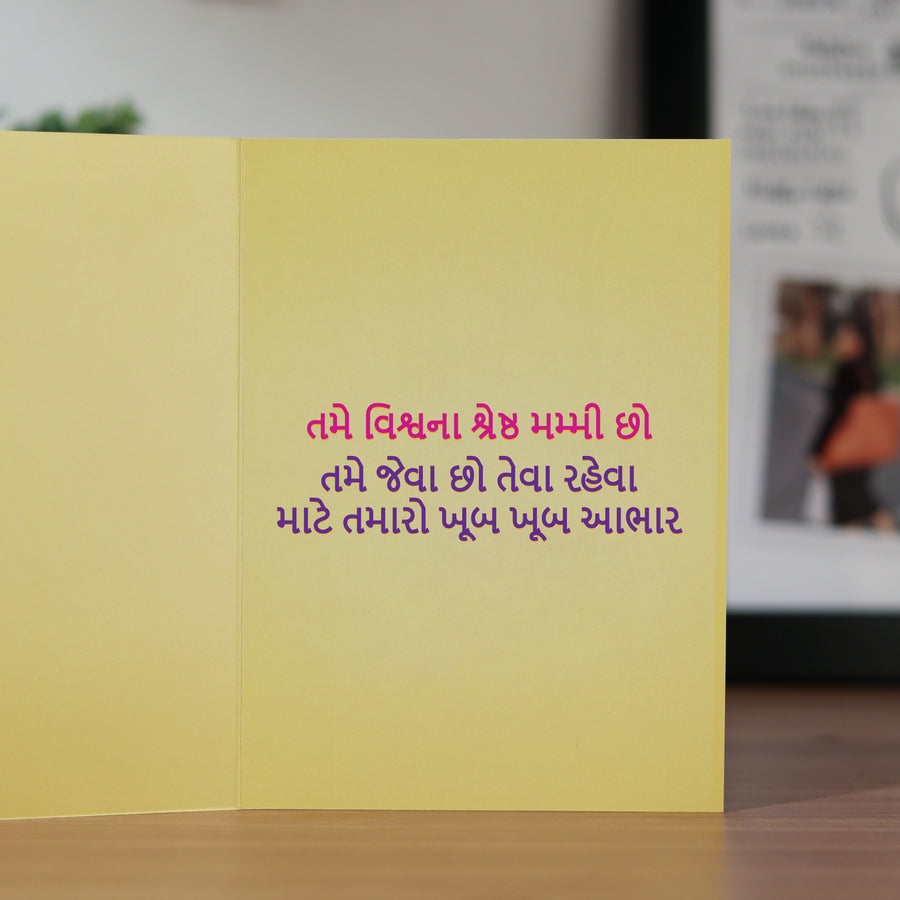 તમે વિશ્વના શ્રેષ્ઠ મમ્મી છો
તમે જેવા છો તેવા રહેવા
માટે તમારો ખૂબ ખૂબ આભાર